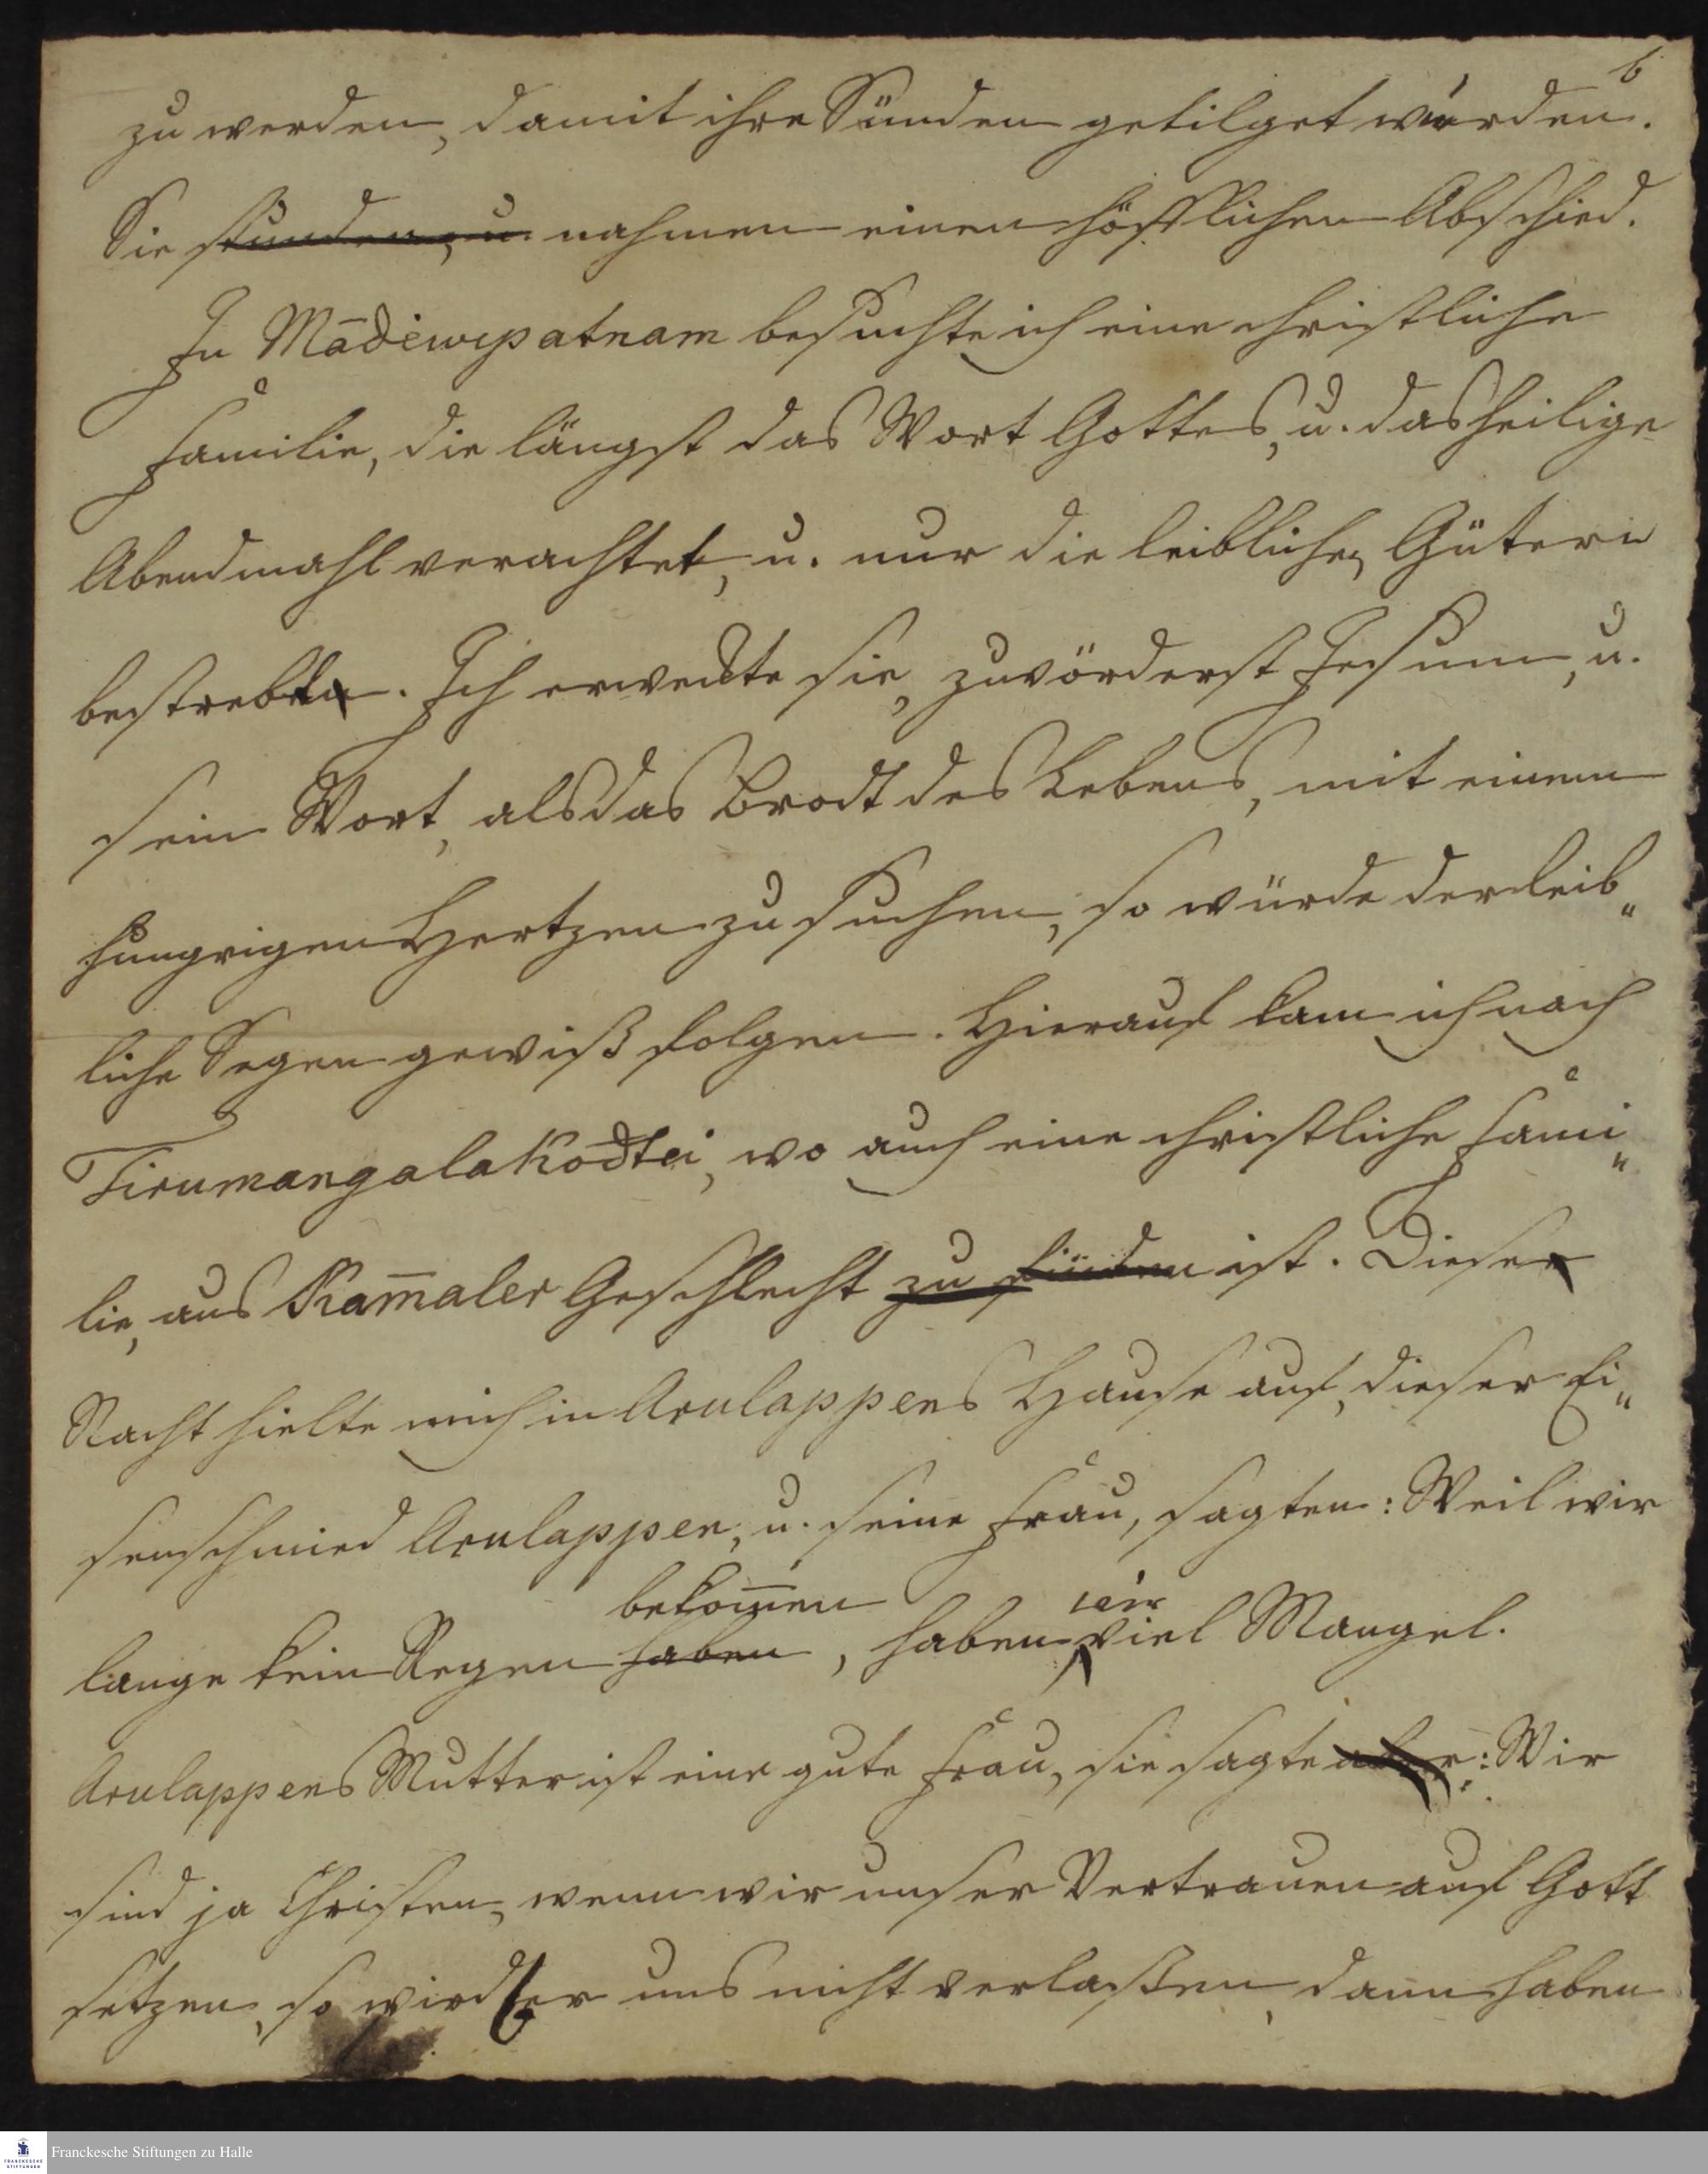 6
zu werden, damit ihre Sünden getilget würden.
Sie stunden, u. nahmen einen höfflichen Abschied.
In Mādēwipatnam besuchte ich eine christliche
Familie, die längst das Wort Gottes, u. das heilige
Abendmahl verachtet, u. nur die leibliche Gütern
bestrebte. Ich erweckte sie, zuvörderst Jesum, u.
sein Wort, als das Brodt des Lebens, mit einem
hungrigen Hertzen zu suchen, so würde der leib„
liche Segen gewiß folgen. Hierauf kam ich nach
Tirumangalakodtei, wo auch eine christliche Fami„
lie, aus Kam̄aler Geschlecht zu finden ist. Diese
Nacht hielte mich in Arulappens Hause auf, dieser Ei„
senschmied Arulappen, u. seine Frau, sagten: Weil wir
bekom̄en wir
lange kein Regen haben, haben viel Mangel.
Arulappens Mutter ist eine gute Frau, sie sagte aber: Wir
sind ja Christen, wenn wir unser Vertrauen auf Gott
setzen, so wird er uns nicht verlaßen, dann haben
Franckesche Stiftungen zu Halle